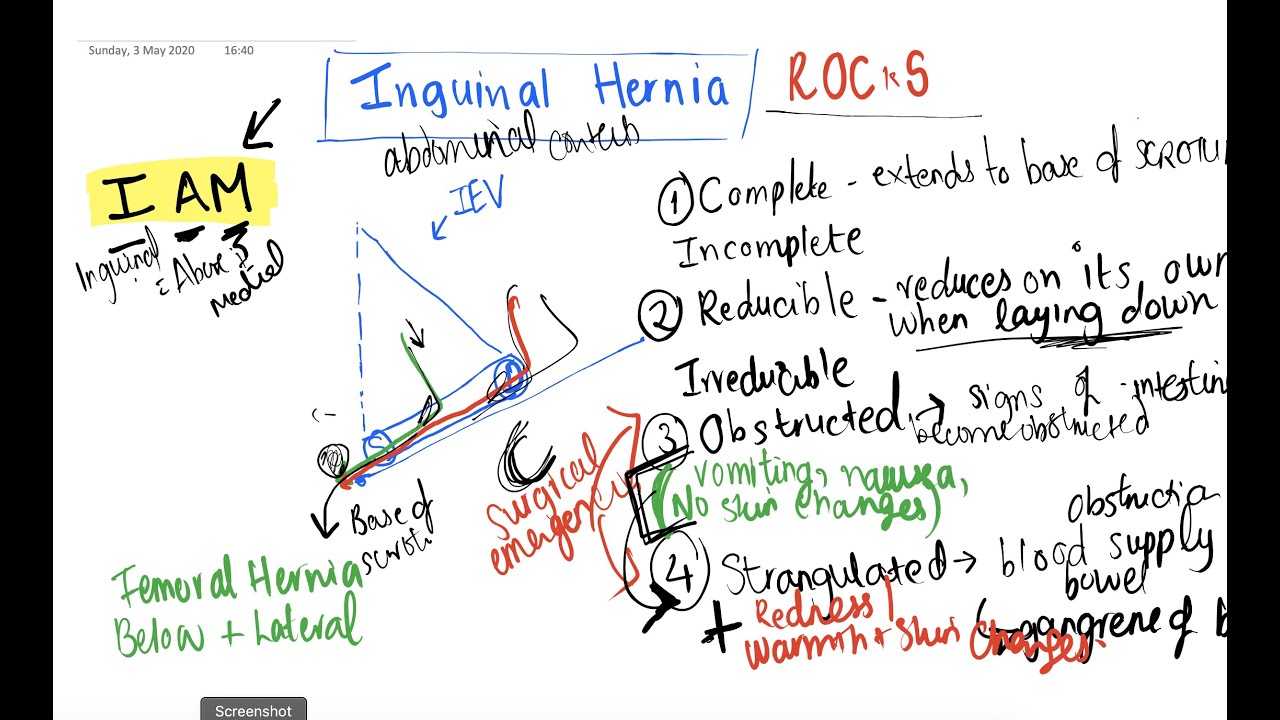 Sunday, 3 May 2020 16:40
Inguinal Hernia
ROCKS
abdominal
I AM
Inguinal
: Above &
medial
IEV
Base of
Femoral Hernia
Below + Lateral
Surgical
emergency
① Complete - extends to base of
Incomplete
② Reducible - reduces on its own
when laying down
Irreducible
③ Obstructed → signs of
become obstructed
vomiting,
(No skin changes)
④ Strangulated → blood supply
bowel
+ Redness /
warmth + skin changes.
gangrene of
Screenshot